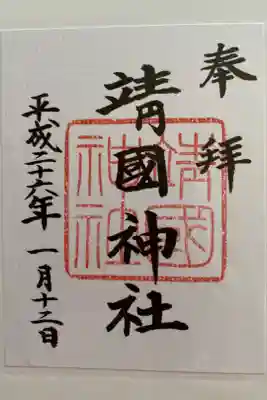 奉拝
靖國神社
平成二十六年 一月十二日
靖國
神社